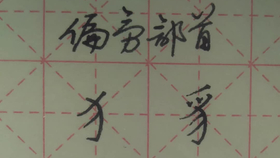 偏旁部首
犭 豸